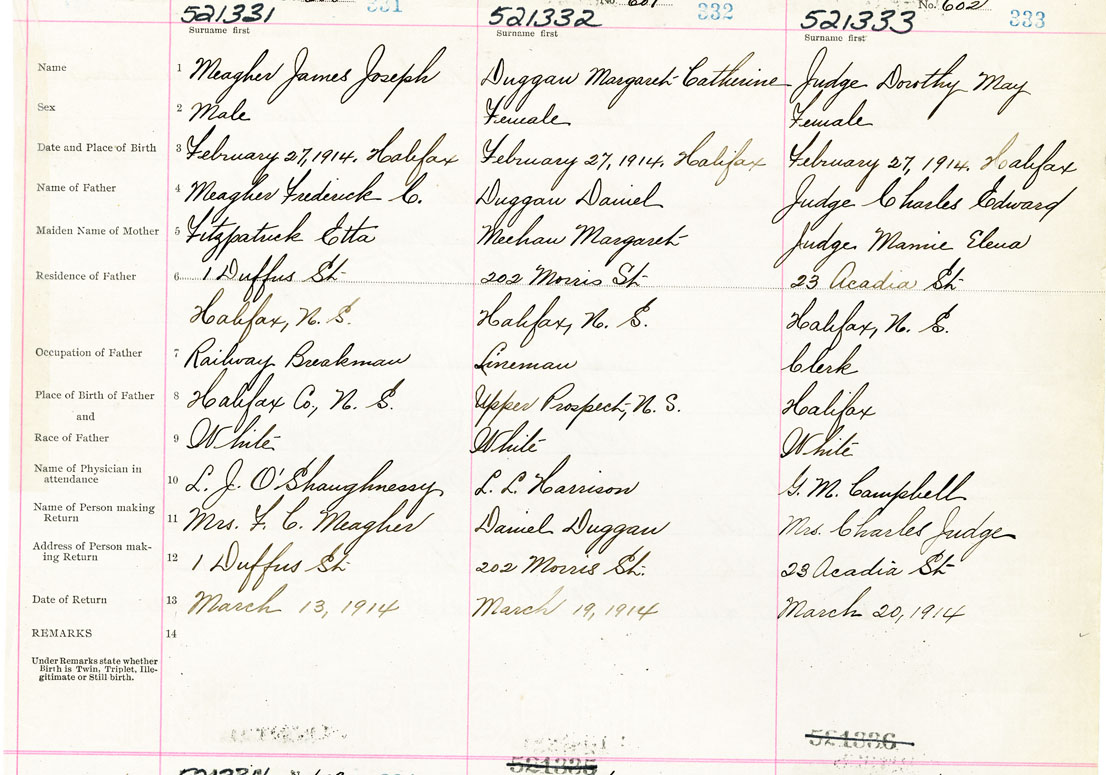 331 No. 601 332 No. 602 333
521331 521332 521333
Surname first Surname first Surname first
Name 1 Meagher James Joseph Duggan Margaret Catherine Judge Dorothy May
Sex 2 Male Female Female
Date and Place of Birth 3 February 27, 1914. Halifax February 27, 1914. Halifax February 27, 1914. Halifax
Name of Father 4 Meagher Frederick C. Duggan Daniel Judge Charles Edward
Maiden Name of Mother 5 Fitzpatrick Etta Meehan Margaret Judge Mamie Elena
Residence of Father 6 1 Duffus St. 202 Morris St. 23 Acadia St.
Halifax, N. S. Halifax, N. S. Halifax, N. S.
Occupation of Father 7 Railway Breakman Lineman Clerk
Place of Birth of Father 8 Halifax Co., N. S. Upper Prospect, N. S. Halifax
and
Race of Father 9 White White White
Name of Physician in
attendance 10 L. J. O'Shaughnessy L. L. Harrison G. M. Campbell
Name of Person making
Return 11 Mrs. F. C. Meagher Daniel Duggan Mrs. Charles Judge
Address of Person mak-
ing Return 12 1 Duffus St. 202 Morris St. 23 Acadia St.
Date of Return 13 March 13, 1914 March 19, 1914 March 20, 1914
REMARKS 14
Under Remarks state whether
Birth is Twin, Triplet, Ille-
gitimate or Still birth.
521336
521335